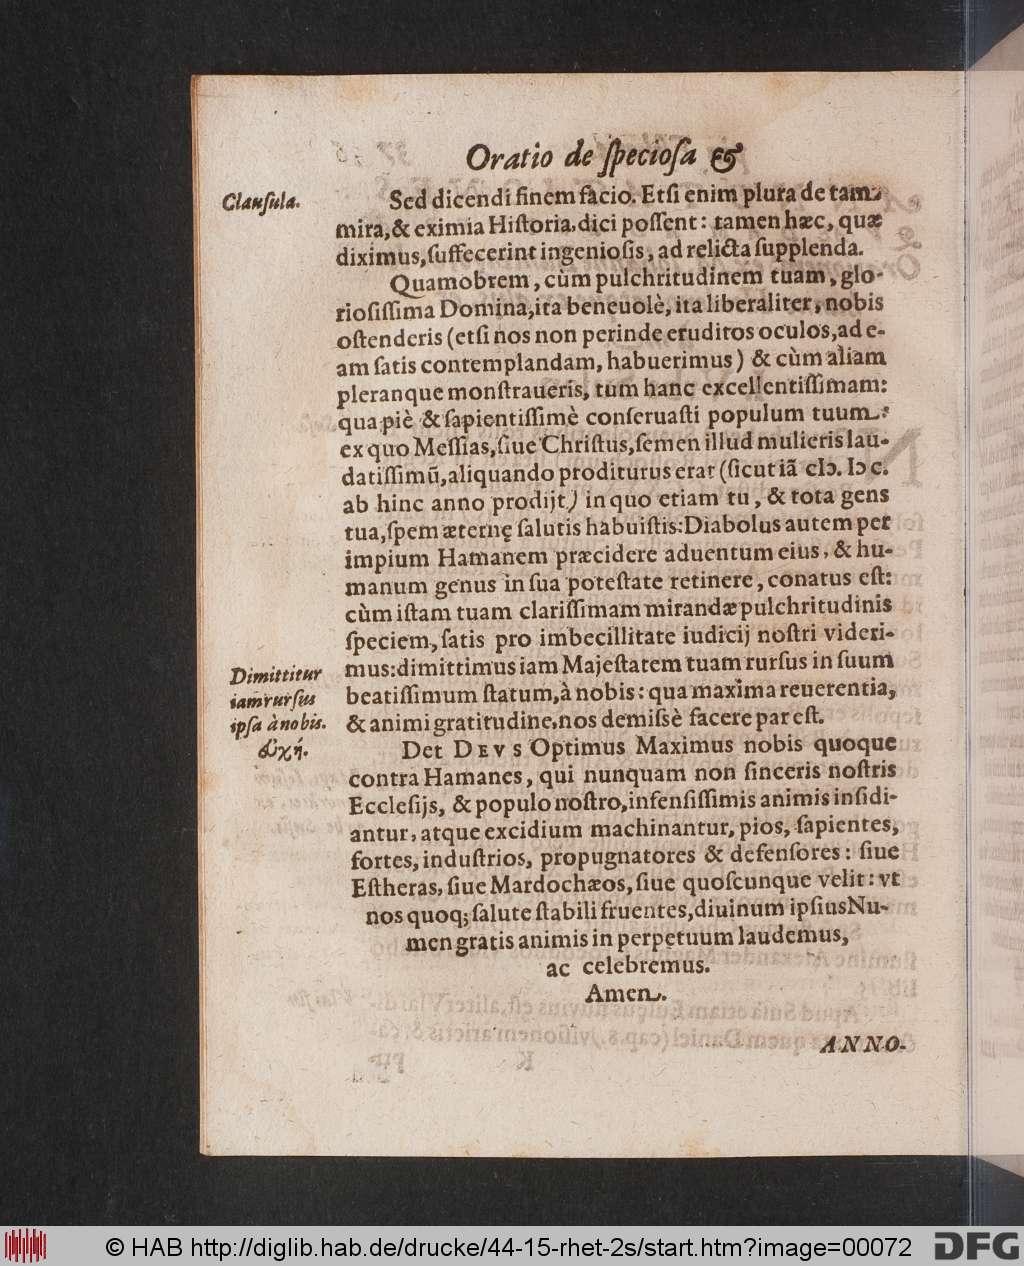 Oratio de ſpecioſa &
Clauſula.
Sed dicendi finem facio. Etſi enim plura de tam
mira, & eximia Hiſtoria dici poſſent: tamen hæc, quæ
diximus, ſuffecerint ingenioſis, ad relicta ſupplenda.
Quamobrem, cùm pulchritudinem tuam, glo-
rioſiſſima Domina, ita beneuolè, ita liberaliter, nobis
oſtenderis (etſi nos non perinde eruditos oculos, ad e-
am ſatis contemplandam, habuerimus) & cùm aliam
pleranque monſtraueris, tum hanc excellentiſſimam:
qua piè & ſapientiſſimè conſeruaſti populum tuum:
ex quo Meſſias, ſiue Chriſtus, ſemen illud mulieris lau-
datiſſimũ, aliquando proditurus erat (ſicut iã cIɔ. Iɔ c.
ab hinc anno prodijt) in quo etiam tu, & tota gens
tua, ſpem æternę ſalutis habuiſtis: Diabolus autem per
impium Hamanem præcidere aduentum eius, & hu-
manum genus in ſua poteſtate retinere, conatus eſt:
cùm iſtam tuam clariſſimam mirandæ pulchritudinis
ſpeciem, ſatis pro imbecillitate iudicij noſtri videri-
mus: dimittimus iam Majeſtatem tuam rurſus in ſuum
beatiſſimum ſtatum, à nobis: qua maxima reuerentia,
& animi gratitudine, nos demiſsè facere par eſt.
Dimittitur
iam rurſus
ipſa à nobis.
εὐχή.
Det DEVS Optimus Maximus nobis quoque
contra Hamanes, qui nunquam non ſinceris noſtris
Eccleſijs, & populo noſtro, infenſiſſimis animis inſidi-
antur, atque excidium machinantur, pios, ſapientes,
fortes, induſtrios, propugnatores & defenſores: ſiue
Eſtheras, ſiue Mardochæos, ſiue quoſcunque velit: vt
nos quoq; ſalute ſtabili fruentes, diuinum ipſius Nu-
men gratis animis in perpetuum laudemus,
ac celebremus.
Amen.
ANNO.
© HAB http://diglib.hab.de/drucke/44-15-rhet-2s/start.htm?image=00072 DFG